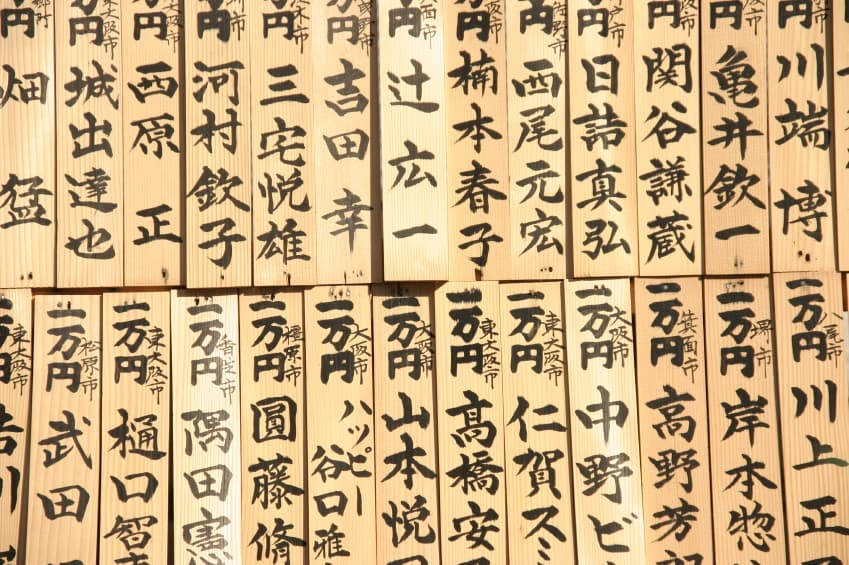 万円 川端 博
万円 市 亀井欽一
万円 市 関谷謙蔵
万円 市 日詰真弘
万円 市 西尾元宏
万円 大阪市 楠本春子
万円 面市 辻 広一
万円 市 吉田 幸
万円 木市 三宅悦雄
万円 市 河村欽子
万円 大阪市 西原 正
万円 東大阪市 城出達也
万円 畑 猛
一万円 八尾市 川上正
一万円 堺市 岸本惣
一万円 箕面市 高野芳
一万円 大阪市 中野ビ
一万円 東大阪市 仁賀スミ
一万円 東大阪市 髙橋安
一万円 大阪市 山本悦
一万円 大阪市 ハッピー谷口雅
一万円 橿原市 圓藤脩
一万円 香芝市 隅田憲
一万円 東大阪市 樋口智
一万円 松原市 武田
東大阪市 吉川